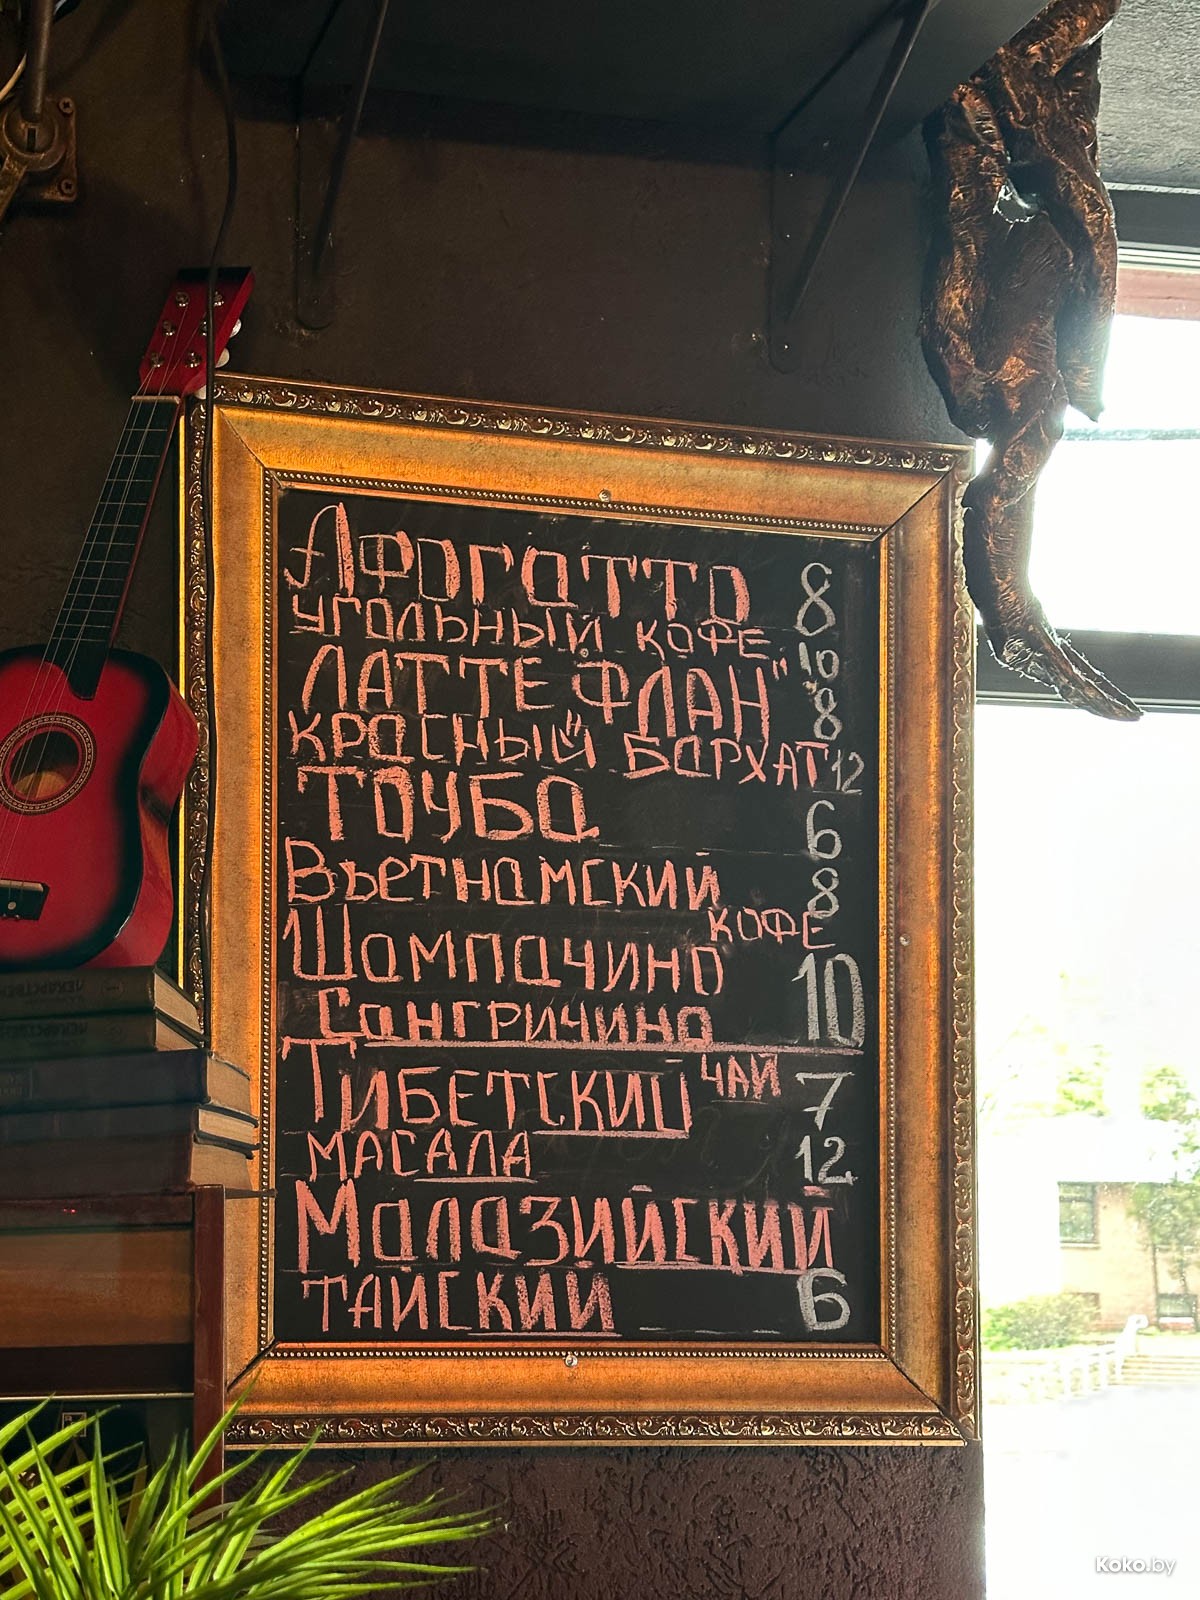 Афогатто 8
угольный кофе 10
Латте "Флан" 8
Красный Бархат 12
Тоуба 6
Вьетнамский 8
кофе
Шампачино 10
Сангричино
Тибетский чай 7
масала 12
Малазийский
тайский 6
Koko.by